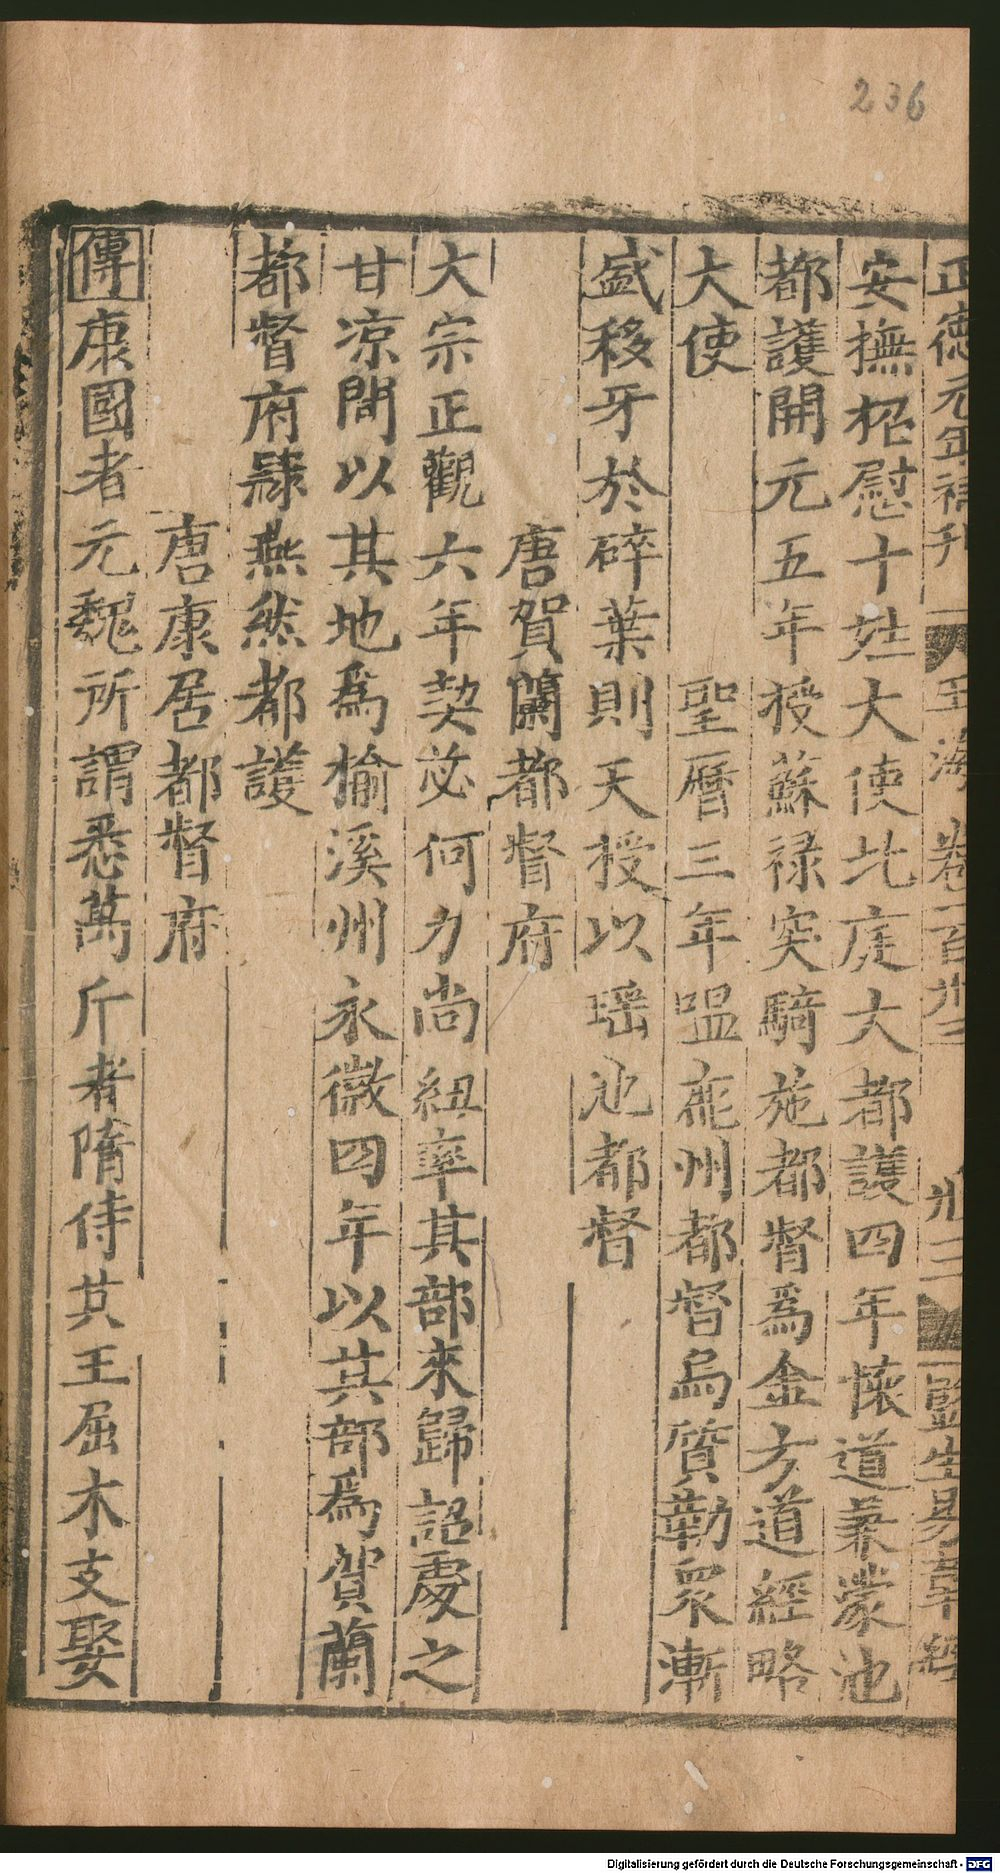 236
正德元年補刊 玉海 卷一百卅三 卅三 監生易
安撫招慰十姓大使北庭大都護四年懷道兼濛池
都護開元五年授蘇祿突騎施都督爲金方道經略
大使 聖曆三年嗢鹿州都督烏質勒衆漸
盛移牙於碎葉則天授以瑶池都督
唐賀蘭都督府
大宗正觀六年契苾何力尚紐率其部來歸詔處之
甘凉間以其地爲榆溪州永徽四年以其部爲賀蘭
都督府隸燕然都護
唐康居都督府
傳康國者元魏所謂悉萬斤者隋侍其王屈木支娶
Digitalisierung gefördert durch die Deutsche Forschungsgemeinschaft - DFG